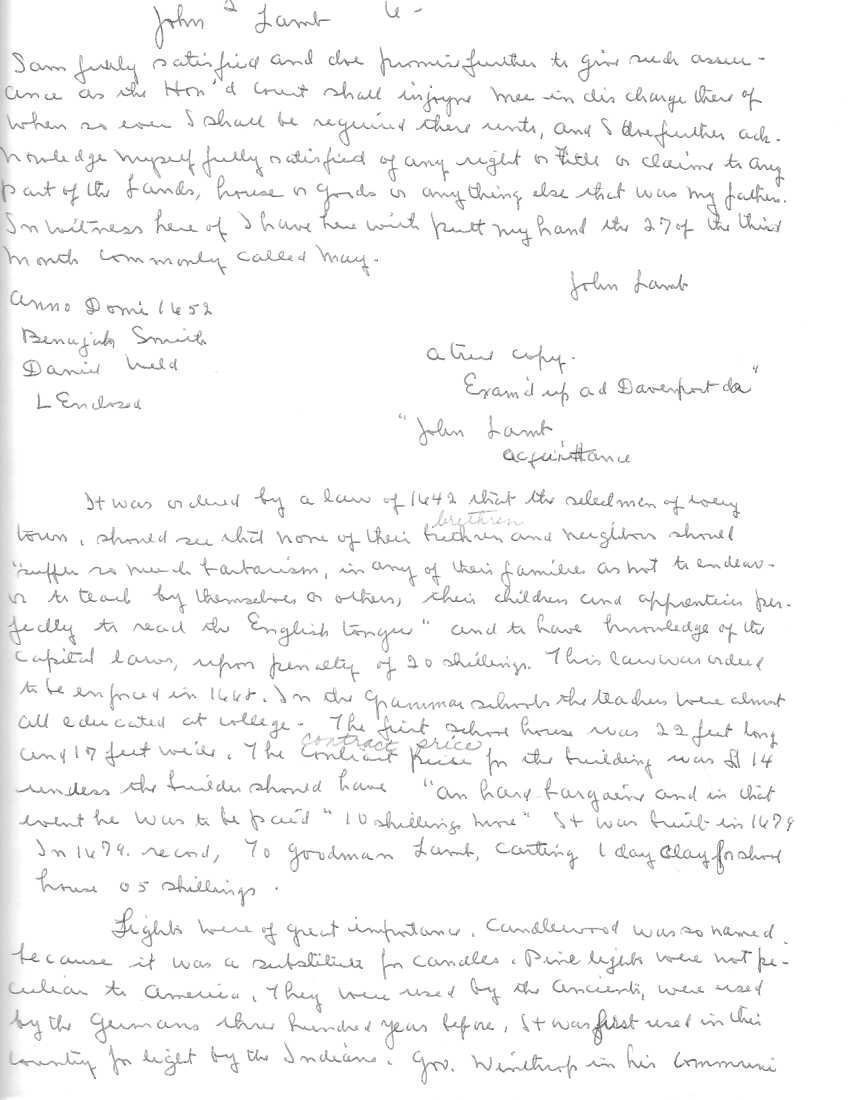 John 2 Lamb 6-
I am fully satisfied and doe promise further to give such assur-
ance as the Hon'd Court shall injoyne mee in discharge there of
when so ever I shall be required there unto, and I doe further ack-
nowledge myself fully satisfied of any right or title or claime to any
part of the Lands, house or goods or anything else that was my father.
In witness here of I have here with putt my hand the 27 of the third
month commonly called May.
John Lamb
Anno Domi 1652
Benajah Smith
Daniel Weld
L Endorsed
a true copy.
Exam'd up ad Davenport "
"John Lamb
acquittance
It was ordered by a law of 1642 that the selectmen of every
brethren
town, should see that none of their brethren and neighbors should
"suffer so much barbarism, in any of their families as not to endeav-
or to teach by themselves or others, their children and apprentices per-
fectly to read the English tongue" and to have knowledge of the
capital laws, upon penalty of 20 shillings. This law was ordered
to be enforced in 1648. In the Grammar schools the teachers were almost
all educated at college. The first school house was 22 feet long
contract price
and 17 feet wide. The contract price for the building was £ 14
unless the builder should have "an hard bargaine and in that
event he was to be paid "10 shillings more" It was built in 1679
In 1679. record, To Goodman Lamb, carting 1 day clay for school
house 05 shillings.
Lights were of great importance. Candlewood was so named
because it was a substitute for candles. Pine lights were not pe-
culiar to America. They were used by the ancients, were used
by the Germans three hundred years before, It was first used in this
country for light by the Indians. Gov. Winthrop in his communi